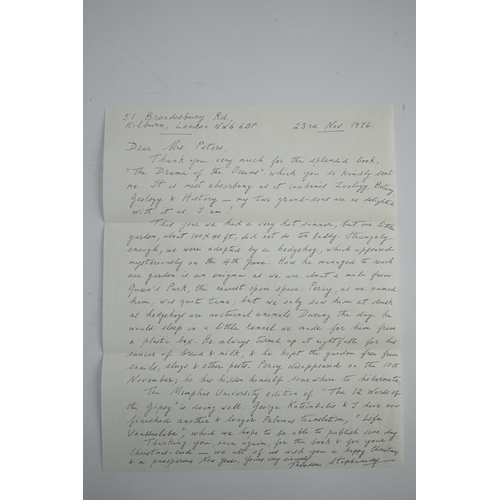 51 Brondesbury Rd,
Kilburn, London NW6 6BP 23rd Nov. 1976.
Dear Mrs. Peters,
Thank you very much for the splendid book,
"The Drama of the Oceans" which you so kindly sent
me. It is most absorbing as it combines Zoology, Botany,
Geology & History — my two grand-sons are as delighted
with it as I am!
This year we had a very hot summer, but our little
garden, about 100 x 40 ft, did not do too badly. Strangely
enough, we were adopted by a hedgehog, which appeared
mysteriously on the 4th June. How he managed to reach
our garden is an enigma as we are about a mile from
Queen's Park, the nearest open space. Percy, as we named
him, was quite tame, but we only saw him at dusk
as hedgehogs are nocturnal animals. During the day he
would sleep in a little kennel we made for him from
a plastic box. He always turned up at nightfall for his
saucer of bread & milk, & he kept the garden free from
snails, slugs & other pests. Percy disappeared on the 10th
November; he has hidden himself somewhere to hibernate.
The Memphis University edition of "The 12 Words of
the Gipsy" is doing well. George Katsimbalis & I have now
finished another & longer Palamas translation, "Life
Unshakable", which we hope to be able to publish some day.
Thanking you, once again, for the book & for your
Christmas-card — we all of us wish you a happy Christmas
& a prosperous New Year. Yours very sincerely
Theodore Stephanides